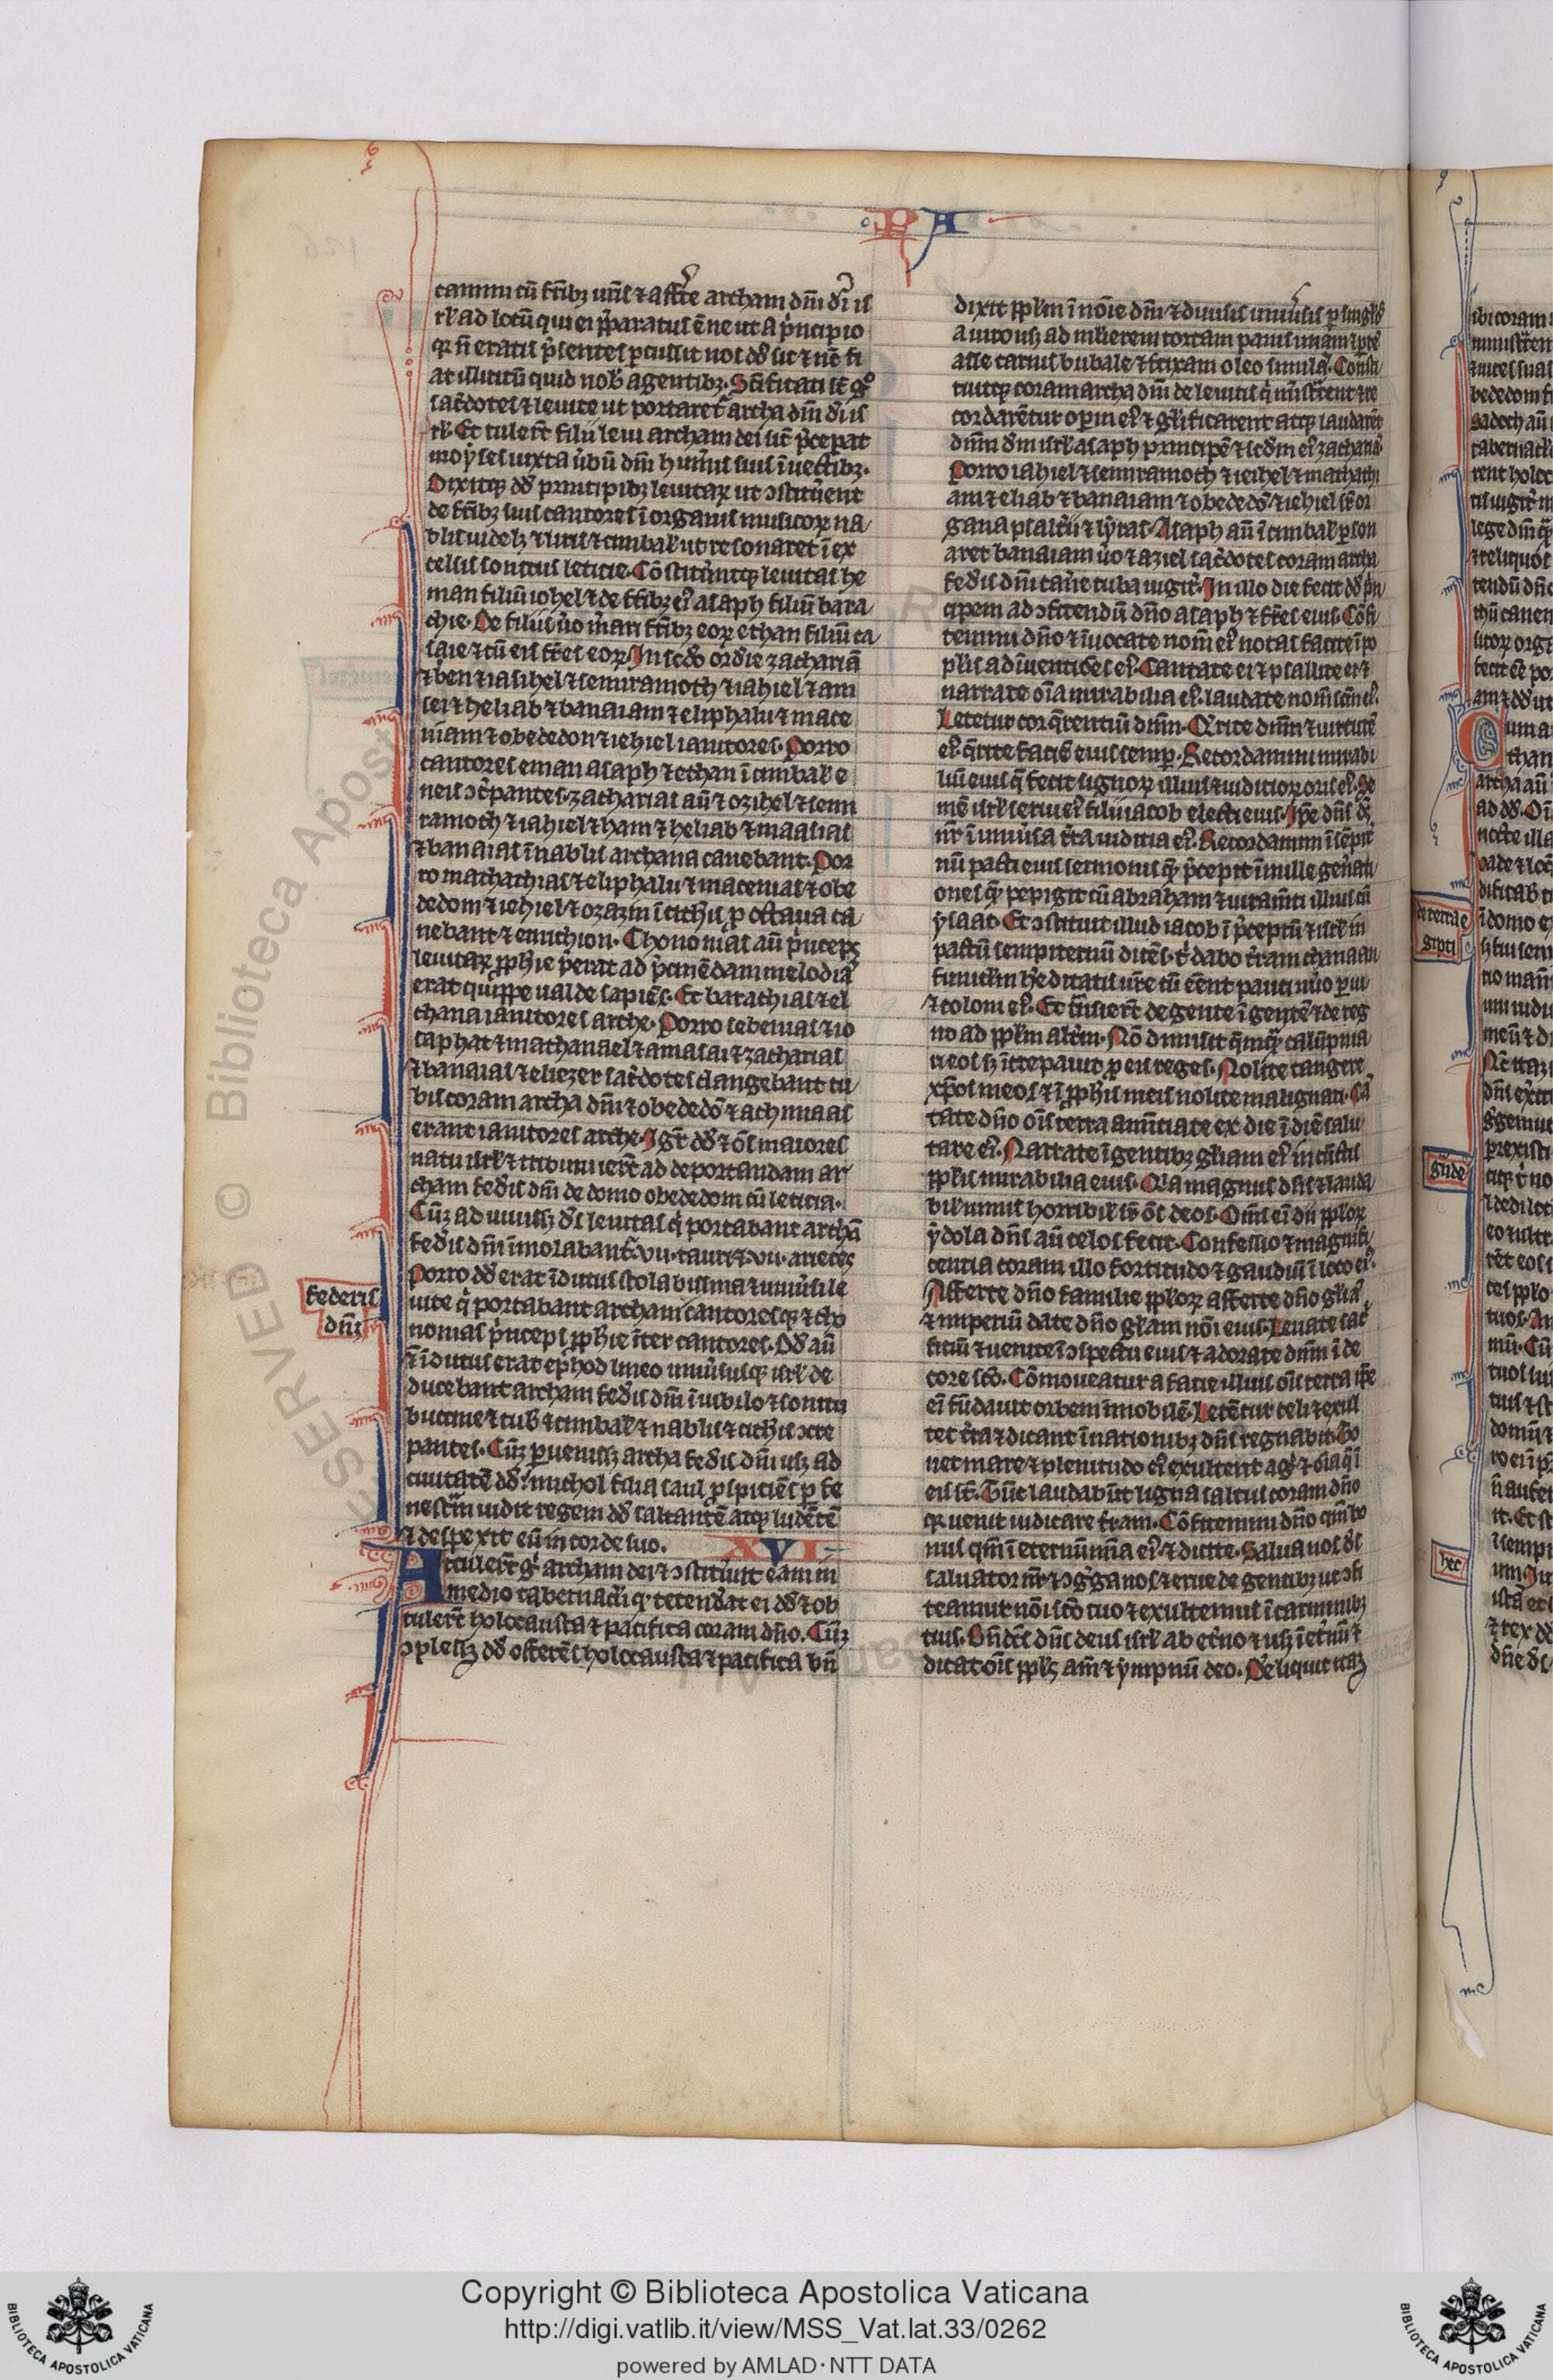 PA
camini cũ fr̃ibȝ ur̃is ⁊ afferte archam dñi di isr
rl̃ ad locũ qui ei p̃paratus ẽ ne ut a p̃ncipio
qꝛ ñ eratis p̃sentes ꝑcussit nos ds̃ sic ⁊ nc̃ fi
at illicitũ quid nob̃ agentibȝ. Sc̃ificati st̃ gͦ
sac̃dotes ⁊ leuite ut portarẽt archã dñi di is
rl̃. Et tulerũt filii leui archam dei sic̃ p̃ceꝑat
moẏses iuxta ũbũ dñi humeris suis ĩ uectibȝ.
Dixitqȝ dd̃ principibȝ leuitaꝝ ut ↄstituẽnt
de fr̃ibȝ suis cantores ĩ organis musicoꝝ na
blis uidelȝ ⁊ liris ⁊ cimbal̃ ut resonaret ĩ ex
celsis sonitus leticie. Cõstituer̃ntqȝ leuitas he
man filiũ iohel ⁊ de fr̃ibȝ eiꝰ asaph filiũ bara
chie. De filiis ũo mari fr̃ibȝ eoꝝ ethan filiũ ca
saie ⁊ cũ eis fr̃es eoꝝ. In sc̃do ordĩe zachariã
⁊ ben ⁊ iasihel ⁊ semiramoth ⁊ iahiel ⁊ am
sei ⁊ heliab ⁊ banaiam ⁊ eliphalu ⁊ mace
niam ⁊ obededon ⁊ iehiel ianitores. Porro
cantores eman asaph ⁊ ethan ĩ cimbal̃ e
neis ↄc̃pantes. zacharias aũ ⁊ ozihel ⁊ semi
ramoth ⁊ iahiel ⁊ ham ⁊ heliab ⁊ maasias
⁊ banaias ĩ nablis archana canebant. Por
ro mathathias ⁊ eliphalu ⁊ macenias ⁊ obe
dedom ⁊ iehiel ⁊ ozazim ĩ cithis ꝓ octaua ca
nebant ⁊ enichion. Chononias aũ p̃nceps
leuitaꝝ ꝓph̃ie p̃erat ad p̃cinẽdam melodiã
erat quippe ualde sapiẽs. Et barachias ⁊ el
chana ianitores arche. Porro sebenias ⁊ io
saphat ⁊ mathanael ⁊ amasai ⁊ zacharias
⁊ banaias ⁊ eliezer sac̃dotes clangebant tu
bis coram archa dñi ⁊ obededõ ⁊ achimaas
erant ianitores arche. Igr̃ dd̃ ⁊ õs maiores
natu isrl̃ ⁊ tribuni ierũt ad deportandam ar
cham fed̃is dñi de domo obededom cũ leticia.
Cũqȝ adiuuissȝ ds̃ leuitas q̃ portabant archã
fed̃is dñi ĩmolabantr̃ .vii. tauri ⁊ .vii. arietes
Porro dd̃ erat ĩdutus stola bissina ⁊ uniũsi le
uite q̃ portabant archam cantoresqȝ ⁊ cho
nonias p̃nceps ꝓph̃ie ĩter cantores. Dd̃ aũ
⁊ ĩdutus erat ephod lineo uniũsusqȝ isrl̃ de
ducebant archam fed̃is dñi ĩ iubilo ⁊ sonitu
buccine ⁊ tub̃ ⁊ cimbal̃ ⁊ nablis ⁊ cithis ↄcre
pantes. Cũqȝ ꝑuenissȝ archa fed̃is dñi usqȝ ad
ciuitatẽ dd̃ michol filia saul ꝓspiciẽs ꝑ fe
nestrã uidit regem dd̃ saltantẽ atqȝ ludẽtẽ
⁊ despexit eũ in corde suo. XVI
Attulerũt gͦ archam dei ⁊ ↄstituer̃nt eam in
medio tabernacli qͩ tetenderat ei dd̃ ⁊ ob
tulerũt holocausta ⁊ pacifica coram dño. Cũqȝ
ↄplessȝ dd̃ offerẽs holocausta ⁊ pacifica bñ
federis
dñi
dixit ppl̃m ĩ nõie dñi ⁊ diuisit uniũsis ꝑ singl̃os
a uiro usȝ ad mlierem tortam panis unam ⁊ ꝑtẽ
asse carnis bubale ⁊ frixam oleo similã. Consti
tuitqȝ coram archa dñi de leuitis q̃ mĩstrẽnt ⁊ re
cordarẽtur opum eiꝰ ⁊ gl̃ificarent atqȝ laudarẽt
dñm dm̃ isrl̃ asaph principẽ ⁊ sc̃dm eiꝰ zachariã.
Porro iahiel ⁊ semiramoth ⁊ ieihel ⁊ mathathi
am ⁊ eliab ⁊ banaiam ⁊ obededõ ⁊ iehiel sr̃ or
gana psalt̃ii ⁊ lẏras. Asaph aũ ĩ cimbal̃ ꝑson
aret banaiam ũo ⁊ aziel sac̃dotes coram archa
fed̃is dñi can̾e tuba iugit̃. In illo die fecit dd̃ pͥn
cipem ad ↄfitendũ dño asaph ⁊ fr̃es eius. Cõfi
temini dño ⁊ ĩuocate nom̃ eiꝰ notas facite ĩ po
plis ad ĩuentiões eiꝰ. Cantate ei ⁊ psallite ei ⁊
narrate oĩa mirabilia eiꝰ. laudate nom̃ sc̃m eiꝰ.
Letetur cor q̃rentiũ dñm. Q̃rite dñm ⁊ uirtutẽ
eiꝰ q̃rite faciẽ eius semꝑ. Recordamini mirabi
liũ eius q̃ fecit signoꝝ illius ⁊ iudicioꝝ oris eiꝰ. Se
mẽ isrl̃ serui eiꝰ filii iacob electi eius. Ip̃e dñs ds̃
nr̃ ĩ uniũsa t̃ra iudicia eiꝰ. Recordamini ĩ sẽpit̃
nũ pacti eius sermonis q̃ p̃cepit ĩ mille gen̾ati
ones q̃ pepigit cũ abraham ⁊ iuramti illius cũ
ẏsaac. Et ↄstituit illud iacob ĩ p̃ceptũ ⁊ isrl̃ in
pactũ sempiternũ dicẽs. t̃ dabo t̃ram chanaan
funiclm h̾editatis ur̃e cũ eẽnt pauci nũo ꝑui
⁊ coloni eiꝰ. Et t̃nsierũt de gente ĩ gentẽ ⁊ de reg
no ad ppl̃m alt̾m. Nõ dimisit q̃mqȝ calũpnia
ri eos sȝ ĩcrepauit ꝓ eis reges. Nolite tangere
xp̃os meos ⁊ ĩ ꝓph̃is meis nolite malignari. Cã
tate dño oĩs terra anũtiate ex die ĩ diẽ salu
tare eiꝰ. Narrate ĩ gentibȝ gl̃iam eiꝰ in cũctis
ppl̃is mirabilia eius. Q̃a magnus dñs ⁊ lauda
bil̃ nimis ⁊ horribil̃ sr̃ õs deos. Om̃s ei̾ dii pploꝝ
ẏdola dñs aũ celos fecit. Confessio ⁊ magnifi
centia coram illo fortitudo ⁊ gaudiũ ĩ loco eiꝰ.
Afferte dño familie pploꝝ afferte dño gl̃iã
⁊ imperiũ date dño gl̃iam nõi eius. Leuate sac̾
ficiũ ⁊ uenite ĩ ↄspectu eius ⁊ adorate dñm ĩ de
core sc̃o. Cõmoueatur a facie illius oĩs terra ip̃e
ei̾ fũdauit orbem ĩmobilẽ. Letẽtur celi ⁊ exul
tet t̃ra ⁊ dicant ĩ nationibȝ dñs regnabit. To
net mare ⁊ plenitudo eiꝰ exultent agͥ ⁊ oĩa q̃ ĩ
eis st̃. Tũc laudabũt ligna saltus coram dño
qꝛ uenit iudicare t̃ram. Cõfitemini dño qm̃ bo
nus qm̃ ĩ eternũ mĩa eiꝰ ⁊ dicite. Salua nos ds̃
saluator nr̃ ⁊ ↄgͤga nos ⁊ erue de gentibȝ ut ↄfi
teamur nõi sc̃o tuo ⁊ exultemus ĩ carminibȝ
tuis. Bñdc̃s dñs deus isrl̃ ab et̾no ⁊ usȝ ĩ et̾nũ ⁊
dicat oĩs ppl̃s am̃ ⁊ ẏmpnũ deo. Reliquit itaqȝ
de terra e
gipti
gñde
hec
Copyright © Biblioteca Apostolica Vaticana
http://digi.vatlib.it/view/MSS_Vat.lat.33/0262
powered by AMLAD·NTT DATA
BIBLIOTECA APOSTOLICA VATICANA
BIBLIOTECA APOSTOLICA VATICANA